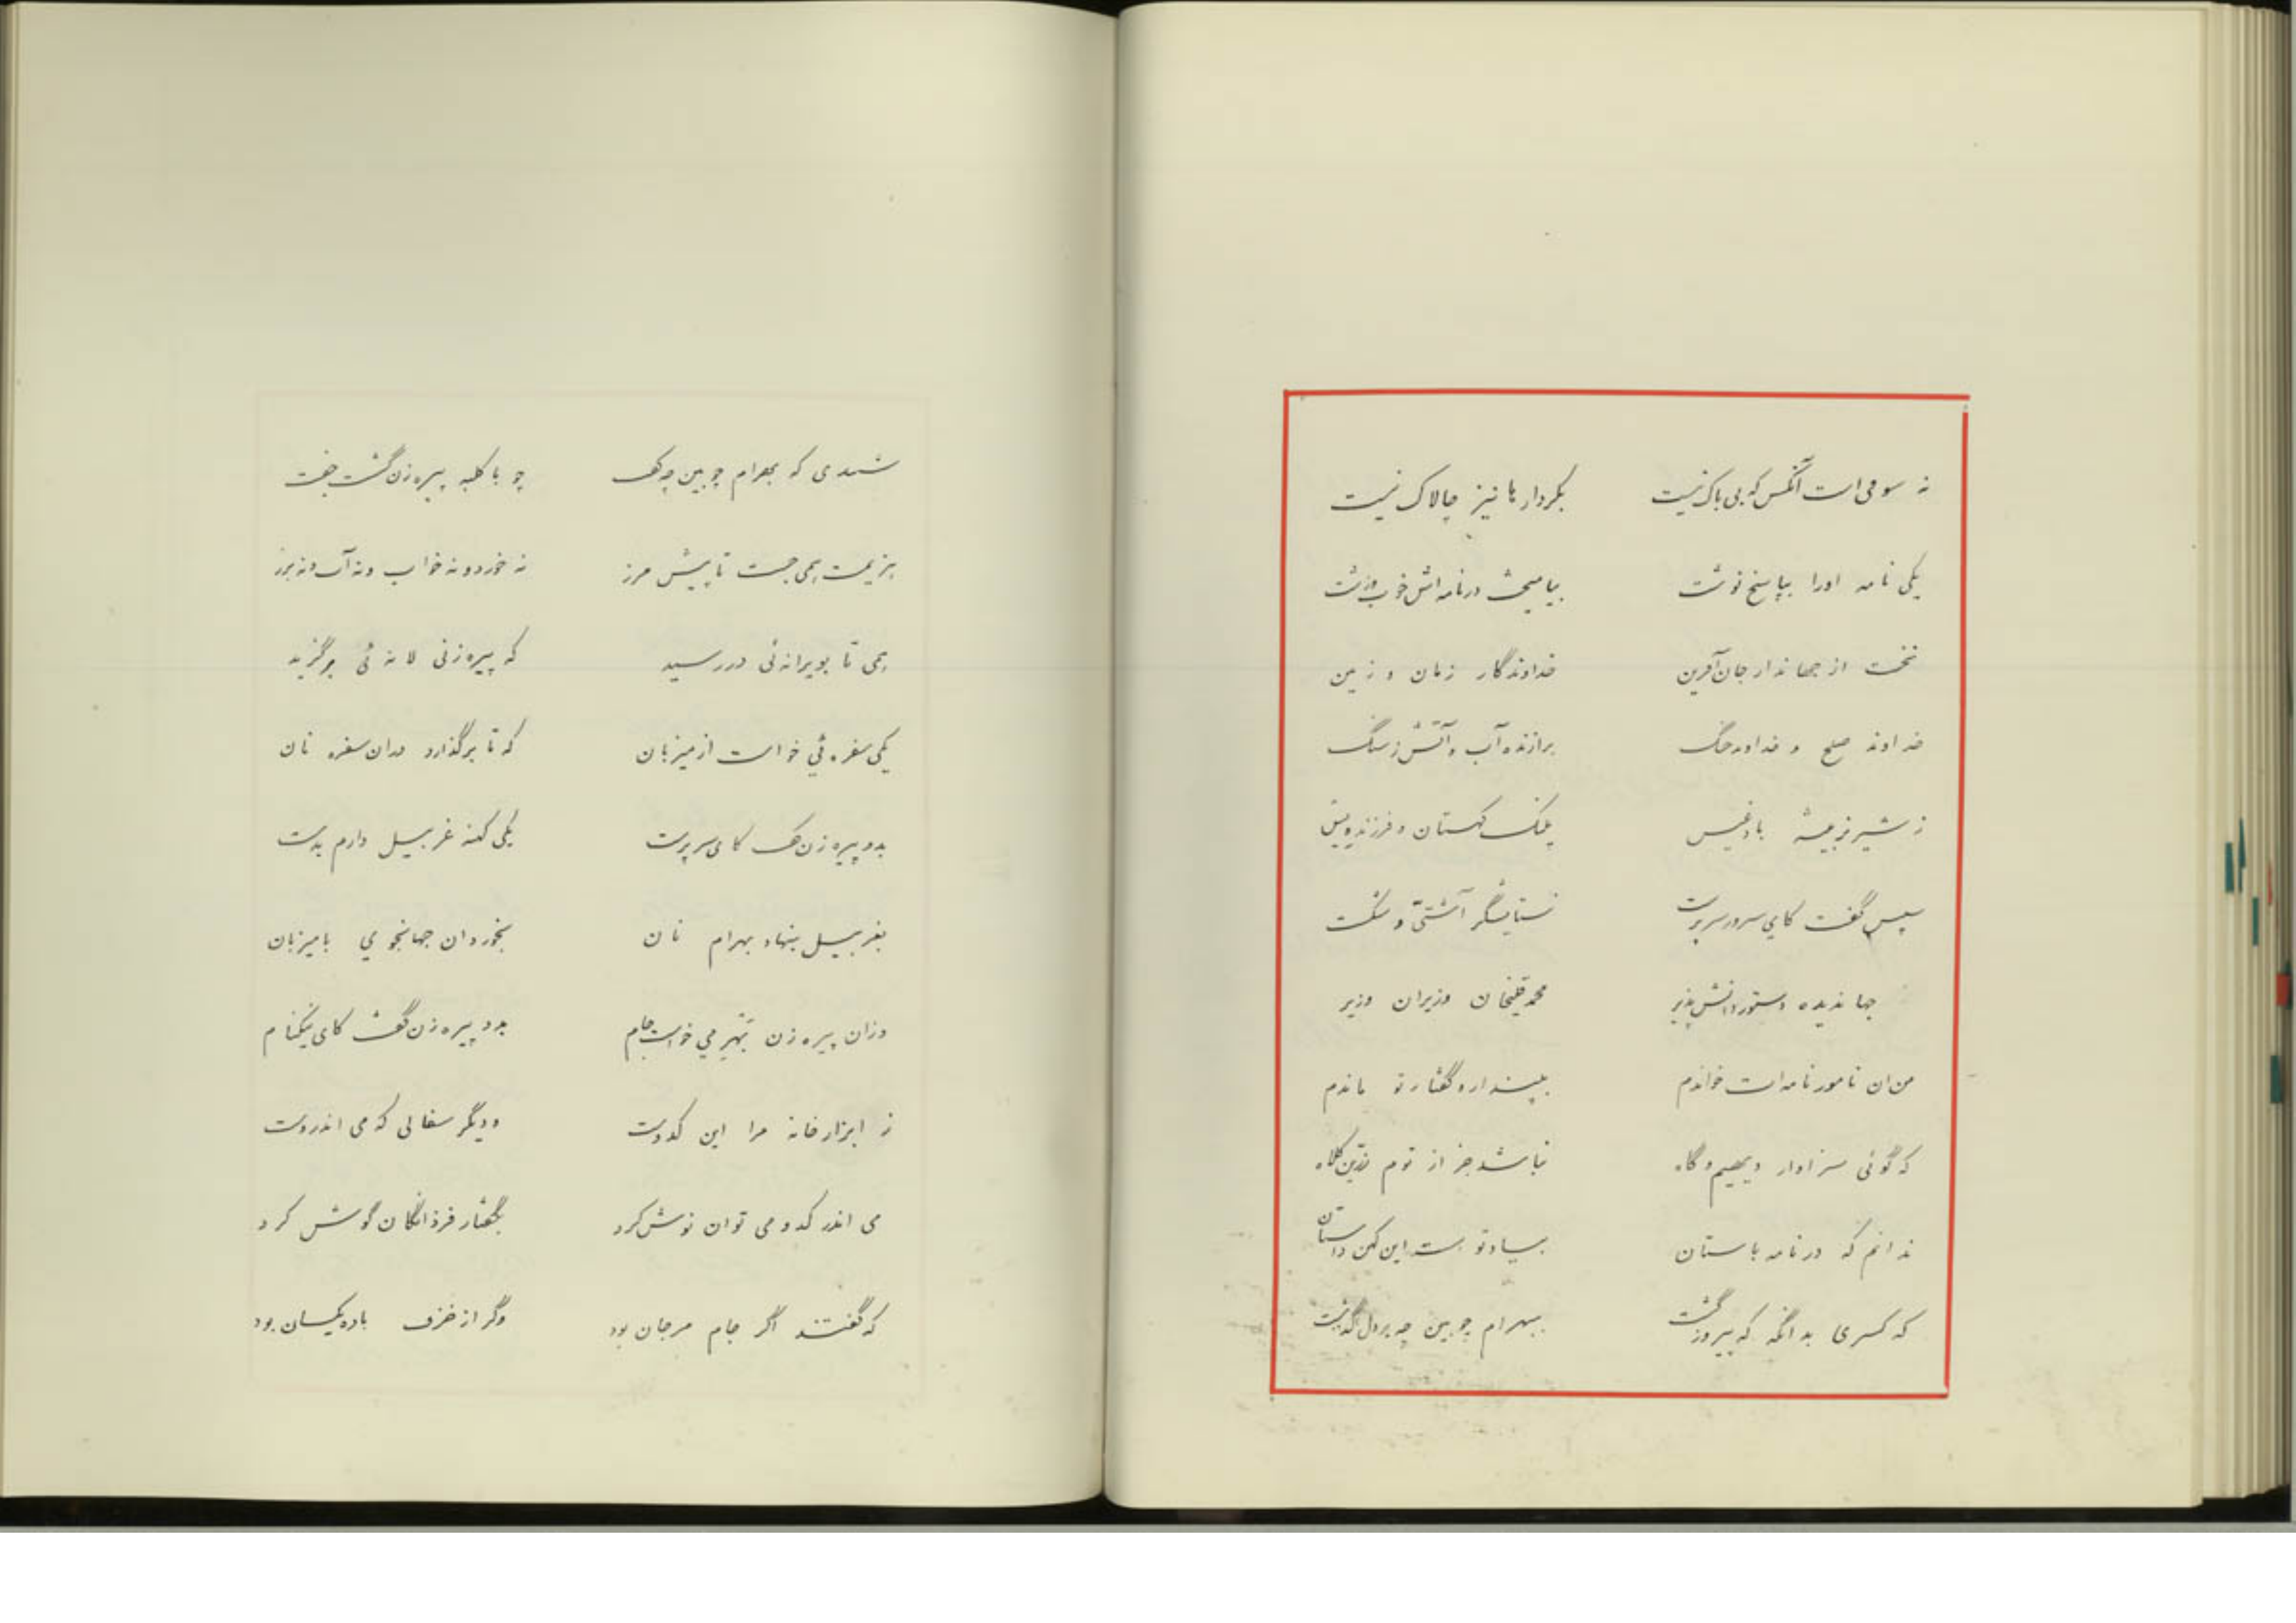 نه سومی است آنکس که بی باک نیست بکردارها نیز چالاک نیست
یکی نامه اورا بپاسخ نوشت بیامیخت در نامه اش خوب و زشت
نخست از جهاندار جان آفرین خداوندگار زمان و زمین
خداوند صلح و خداوند جنگ برازنده آب و آتش ز سنگ
ز شیر نر بیشه بادغیس پلنک کهستان و فرزند
سپس گفت کای سرور سرپرست ستایشگر آشتی و شکست
جهاندیده دستور دانش پذیر محمد قلیخان وزیران وزیر
من ان نامور نامه ات خواندم بپندار و گفتار تو ماندم
که گوئی سزاوار دیهیم و گاه نباشد جز از توم زرین کلاه
ندانم که در نامه باستان بیاد تو هست این کهن داستان
که کسری بدانگه که پیروز گشت ببهرام چوبین چه بر دل گذشت
شنیدی که بهرام چوبین چه گفت چو با کلبه پیره زن گشت جفت
هزیمت همی جست تا پیش مرز نه خورد و نه خواب و نه آب و نه برز
همی تا بویرانه ئی در رسید که پیره زنی لانه ئی برگزید
یکی سفره ئي خواست از میزبان که تا برگذارد بدان سفره نان
بدو پیره زن گفت کای سرپرست یکی کهنه غربیل دارم بدست
بغربیل بنهاد بهرام نان بخورد ان جهانجوي با میزبان
وزان پیره زن بهر مي خواست جام بدو پیره زن گفت کای نیکنام
ز ابزار خانه مرا این کدوست و دیگر سفالی که می اندروست
می اندر کدو می توان نوش کرد بگفتار فرزانگان گوش کرد
که گفتند اگر جام مرجان بود وگر از خزف باده یکسان بود